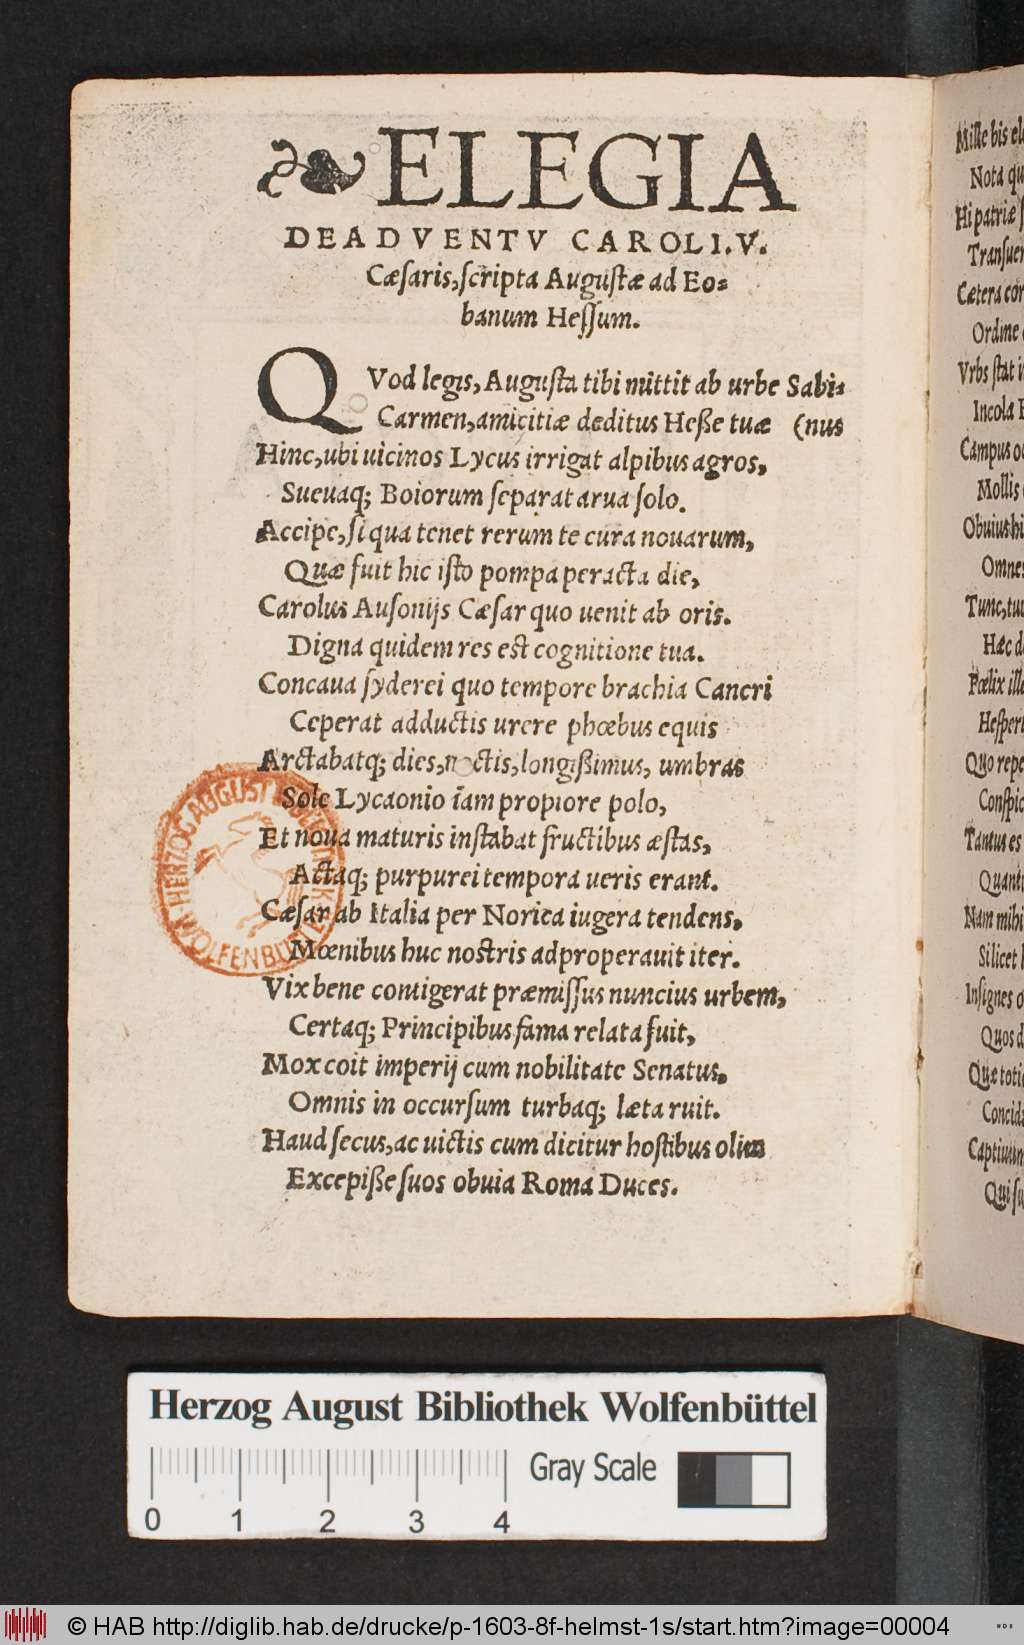 ❧ELEGIA
DE ADVENTV CAROLI. V.
Cæsaris, scripta Augustæ ad Eo-
banum Hessum.
QVod legis, Augusta tibi mittit ab urbe Sabi-
Carmen, amicitiæ deditus Heße tuæ (nus
Hinc, ubi uicinos Lycus irrigat alpibus agros,
Sueuaq; Boiorum separat arua solo.
Accipe, si qua tenet rerum te cura nouarum,
Quæ fuit hic isto pompa peracta die,
Carolus Ausonijs Cæsar quo uenit ab oris.
Digna quidem res est cognitione tua.
Concaua syderei quo tempore brachia Cancri
Ceperat adductis urere phœbus equis
Arctabatq; dies, noctis, longißimus, umbras
Sole Lycaonio iam propiore polo,
Et noua maturis instabat fructibus æstas,
Actaq; purpurei tempora ueris erant.
Cæsar ab Italia per Norica iugera tendens,
Mœnibus huc nostris adproperauit iter.
Vix bene contigerat præmissus nuncius urbem,
Certaq; Principibus fama relata fuit,
Mox coit imperij cum nobilitate Senatus,
Omnis in occursum turbaq; læta ruit.
Haud secus, ac uictis cum dicitur hostibus olim
Excepiße suos obuia Roma Duces.
Mille bis
Nota
Hi patriæ
Cætera
Ordine
Vrbs stat
Incola
Campus
Mollis
Obuius
Omnes
Tunc,
Hæc
Fœlix
Quo
Tantus es
Nam mihi
Scilicet
Insignes
Quos
Quæ
Qui
HERZOG AUGUST BIBLIOTHEK WOLFENBÜTTEL
Herzog August Bibliothek Wolfenbüttel
Gray Scale
0 1 2 3 4
© HAB http://diglib.hab.de/drucke/p-1603-8f-helmst-1s/start.htm?image=00004